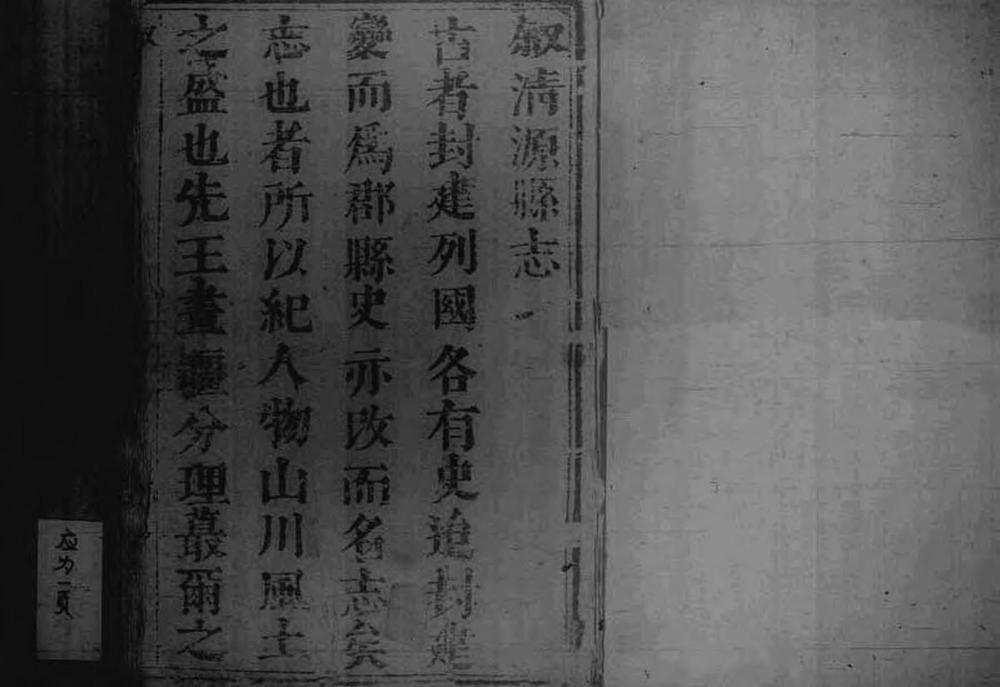 叙清源縣志
古者封建列國各有史迨封建
變而爲郡縣史亦改而名志矣
志也者所以紀人物山川風土
之盛也先王畫疆分理蕞爾之
应为一頁